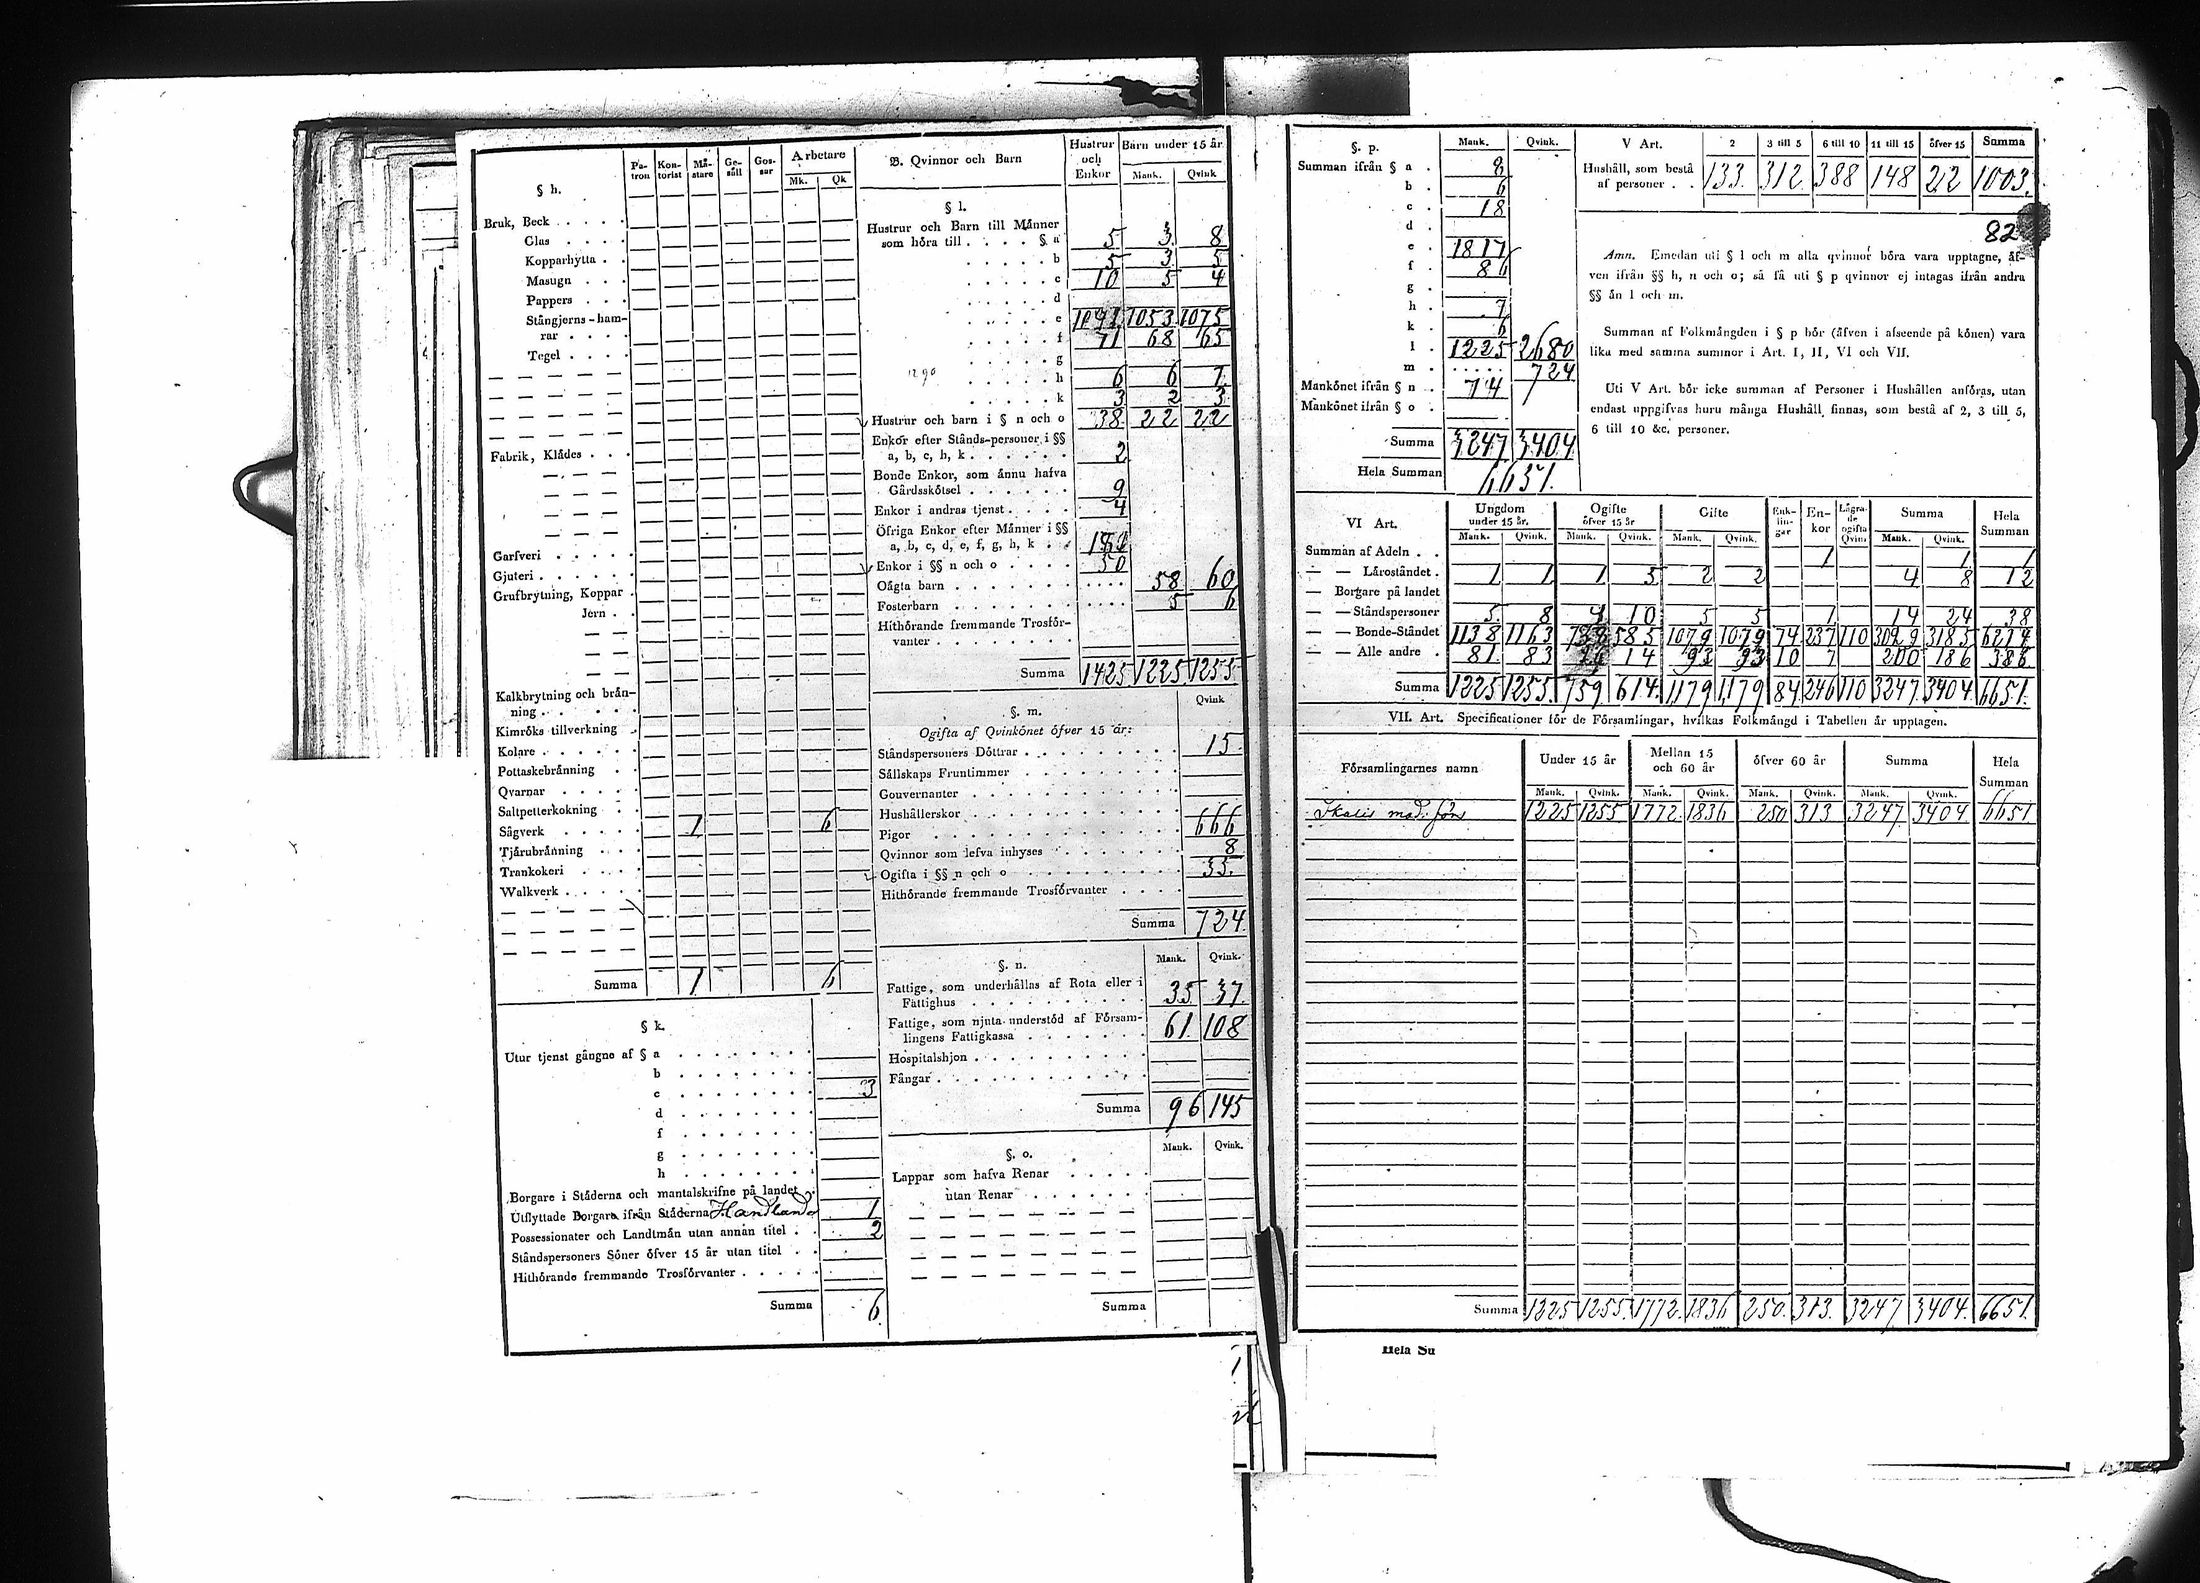 § h.
Pa-tron Kon-torist Må-stare Ge-säll Gos-sar Arbetare
Mk. Qk
Bruk, Beck . . . . .
Glas . . . .
Kopparhytta . .
Masugn . . .
Pappers . . .
Stångjerns-ham-
rar . . . .
Tegel . . . .
Fabrik, Klädes . . .
Garfveri . . . . .
Gjuteri . . . . . .
Grufbrytning, Koppar .
Jern . .
Kalkbrytning och brån-
ning . . . . . .
Kimróks tillverkning .
Kolare . . . . . .
Pottaskebränning . .
Qvarnar . . . . .
Saltpetterkokning . .
Sågverk . . . . . 1 6
Tjärubränning . . .
Trankokeri . . . .
Walkverk . . . . .
Summa 1 6
§ k.
Utur tjenst gångne af § a . . . . . . . .
b . . . . . . . .
c . . . . . . . . 3
d . . . . . . . .
f . . . . . . . .
g . . . . . . . .
h . . . . . . . .
Borgare i Städerna och mantalskrifne på landet .
Utflyttade Borgare ifrån Städerna Handland 1
Possessionater och Landtmän utan annan titel . . 2
Ståndspersoners Söner öfver 15 år utan titel . .
Hithörande fremmande Trosförvanter . . . . .
Summa 6
B. Qvinnor och Barn
Hustrur och Enkor Barn under 15 år.
Mank. Qvink
§ l.
Hustrur och Barn till Männer
som höra till . . . . § a 5 3 8
. . . . . b 5 3 5
. . . . . c 10 5 4
. . . . . d
. . . . . e 1091 1053 1075
. . . . . f 71 68 65
. . . . . g
1290
. . . . . h 6 6 7
. . . . . k 3 2 3
Hustrur och barn i § n och o 38 22 22
Enkor efter Stånds-personer i §§
a, b, c, h, k . . . . . . 2
Bonde Enkor, som ännu hafva
Gårdsskötsel . . . . . . 9
Enkor i andras tjenst . . . . 4
Öfriga Enkor efter Männer i §§
a, b, c, d, e, f, g, h, k . .
Enkor i §§ n och o . . . . 50
Oägta barn . . . . . . . . . . . 58 60
Fosterbarn . . . . . . . . . . . 5 6
Hithörande fremmande Trosför-
vanter . . . . . . . .
Summa 1425 1225 1255
Qvink
§. m.
Ogifta af Qvinkönet öfver 15 år:
Ståndspersoners Döttrar . . . . . . . . . 15
Sällskaps Fruntimmer . . . . . . . . .
Gouvernanter . . . . . . . . . . . .
Hushållerskor . . . . . . . . . . . .
Pigor . . . . . . . . . . . . . . 666
Qvinnor som lefva inhyses . . . . . . . . 8
Ogifta i §§ n och o . . . . . . . . . . 35
Hithörande fremmande Trosförvanter . . . .
Summa 724
Mank. Qvink.
§. n.
Fattige, som underhållas af Rota eller i
Fattighus . . . . . . . . . . 35 37
Fattige, som njuta understöd af Försam-
lingens Fattigkassa . . . . . . . 61 108
Hospitalshjon . . . . . . . . . . .
Fångar . . . . . . . . . . . . .
Summa 96 145
Mank. Qvink.
§. o.
Lappar som hafva Renar . . . . .
utan Renar . . . . . .
Summa
§. p. Mank. Qvink.
Summan ifrån § a . 8
b . 6
c . 18
d .
e . 1817
f . 86
g .
h . 7
k . 6
l . 1225 2680
m . . . . . . 724
Mankönet ifrån § n . . 74
Mankönet ifrån § o .
Summa 3247 3404
Hela Summan 6651.
V Art. 2 3 till 5 6 till 10 11 till 15 öfver 15 Summa
Hushåll, som bestå
af personer . . 133. 312. 388 148 22 1003.
82
Anm. Emedan uti § l och m alla qvinnor böra vara upptagne, äf-
ven ifrån §§ h, n och o; så få uti § p qvinnor ej intagas ifrån andra
§§ än l och m.
Summan af Folkmängden i § p bör (äfven i afseende på könen) vara
lika med samma summor i Art. I, II, VI och VII.
Uti V Art. bör icke summan af Personer i Hushållen anföras, utan
endast uppgifvas huru många Hushåll finnas, som bestå af 2, 3 till 5,
6 till 10 &c. personer.
VI Art. Ungdom under 15 år. Ogifte öfver 15 år Gifte Enk-lin-gar En-kor Lägra-de ogifta Qvin Summa Hela Summan
Mank. Qvink. Mank. Qvink. Mank. Qvink. Mank. Qvink.
Summan af Adeln . . 1 1 1
— — Läroståndet . 1 1 1 5 2 2 4 8 12
— Borgare på landet
— — Ståndspersoner 5 8 4 10 5 5 1 14 24 38
— — Bonde-Ståndet 1138 1163 585 1079 1079 74 237 110 3029 3185 6214
— — Alle andre . 81 83 14 93 93 10 7 200 186 386
Summa 1225 1255 759 614 1179 1179 84 246 110 3247 3404 6651.
VII. Art. Specificationer för de Församlingar, hvilkas Folkmängd i Tabellen är upptagen.
Församlingarnes namn Under 15 år Mellan 15 och 60 år öfver 60 år Summa Hela Summan
Mank. Qvink. Mank. Qvink. Mank. Qvink. Mank. Qvink.
Ikalis mod. förs 1225 1255 1772 1836 250 313 3247 3404 6651
Summa 1225 1255 1772 1836 250. 313. 3247 3404 6651.
Hela Su